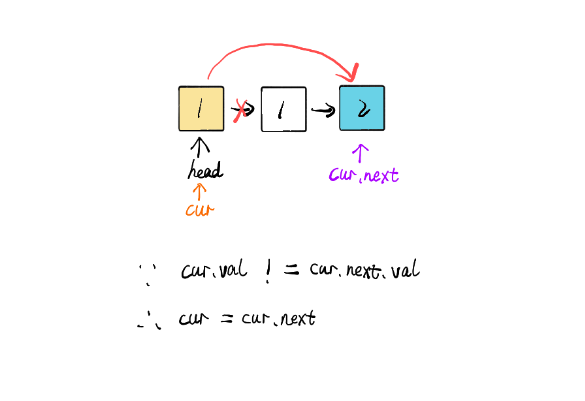 1 1 2
head cur.next
cur
∵ cur.val != cur.next.val
∴ cur = cur.next